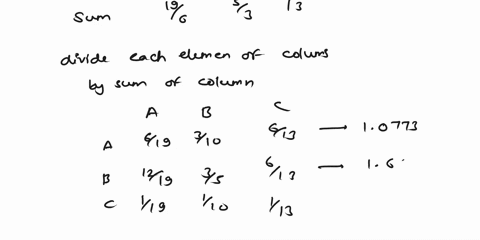 Sum 19/6 5/3 13
divide each elemen of colums
by sum of column
A B C
A 6/19 3/10 6/13 — 1.0773
B 12/19 3/5 6/13 — 1.6
C 1/19 1/10 1/13